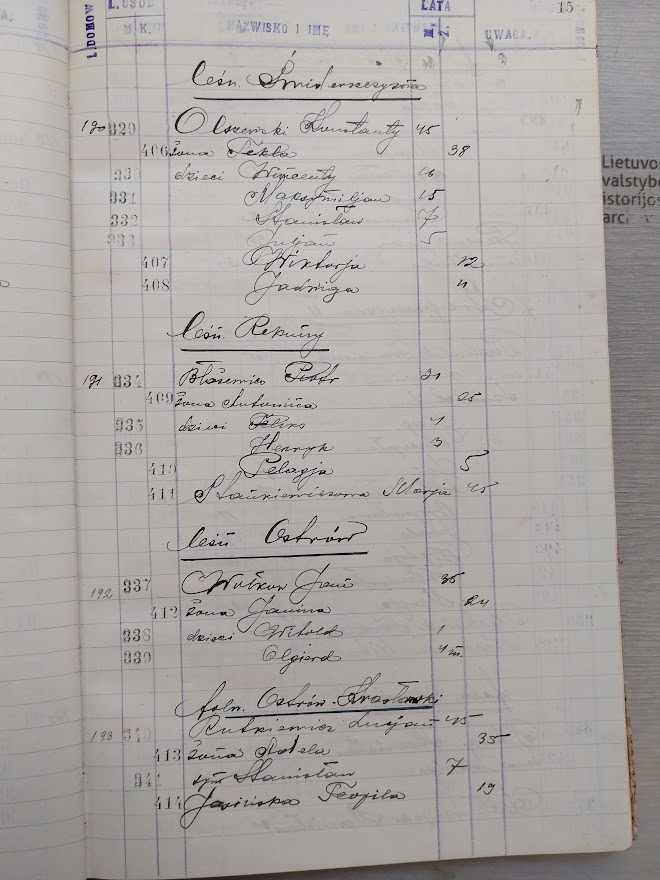 15
L.DOMÓW L.OSÓB NAZWISKO I IMĘ LATA UWAGA.
M. K. M. Ż.
leśn. Świderszczyzna
190 329 Olszewski Konstanty 45
406 żona Tekla 38
330 dzieci Wincenty 16
331 Maksymiljan 15
332 Stanisław 7
333 Juljan 5
407 Wiktorja 12
408 Jadwiga 11
leśn. Rekuny
191 334 Błażewicz Piotr 31
409 żona Antonina 25
335 dzieci Feliks 4
336 Henryk 3
410 Pelagja 5
411 Stankiewiczowa Marja 45
leśn Ostrów
192 337 Wołkow Jan 35
412 żona Janina 24
338 dzieci Witold 1
339 Olgierd 4 m.
folw. Ostrów
193 340 Rutkiewicz Lucjan 45
413 żona Adela 35
341 syn Stanisław 7
414 Teofila 19
Lietuvos
valstybė
istorijos
arc